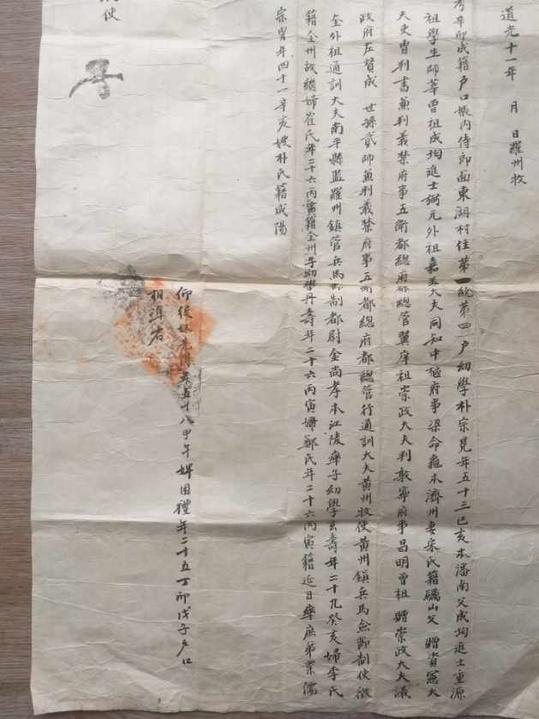 道光十一年 月 日羅州牧
考辛卯成籍戶口帳內侍郎面東湖村住第一統第四戶幼學朴宗冕年五十三己亥本潘南父成均進士重源
祖學生師莘曾祖成均進士弼元外祖嘉善大夫同知中樞府事梁命龜本濟州妻宋氏籍礪山父 贈資憲大
夫吏曹判書兼判義禁府事五衛都總府都總管翼庠祖崇政大夫判敦寧府事昌明曾祖 贈崇政大夫議
政府左贊成 世孫貳師兼判義禁府事五衛都總府都總管行通訓大夫黃州牧使黃州鎮兵馬僉節制使徵
奎外祖通訓大夫南平縣監羅州鎮管兵馬節制都尉金尚孝本江陵率子幼學 壽年二十九癸亥婦李氏
籍全州故繼婦崔氏年二十六丙寅籍全州子幼學丹壽年二十六丙寅婦鄭氏年二十六丙寅籍延日率庶弟業儒
宗 年四十一辛亥嫂朴氏籍咸陽
仰役奴 年五十八甲午婢因禮年二十五丁卯戊子戶口
相準者
使